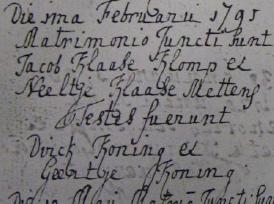 Die 1ma Februarii 1795
Matrimonio Juncti sunt
Jacob Klaase Klomp et
Neeltje Klaase Mettens
Testes fuerunt
Dirck Koning et
Geertje Koning